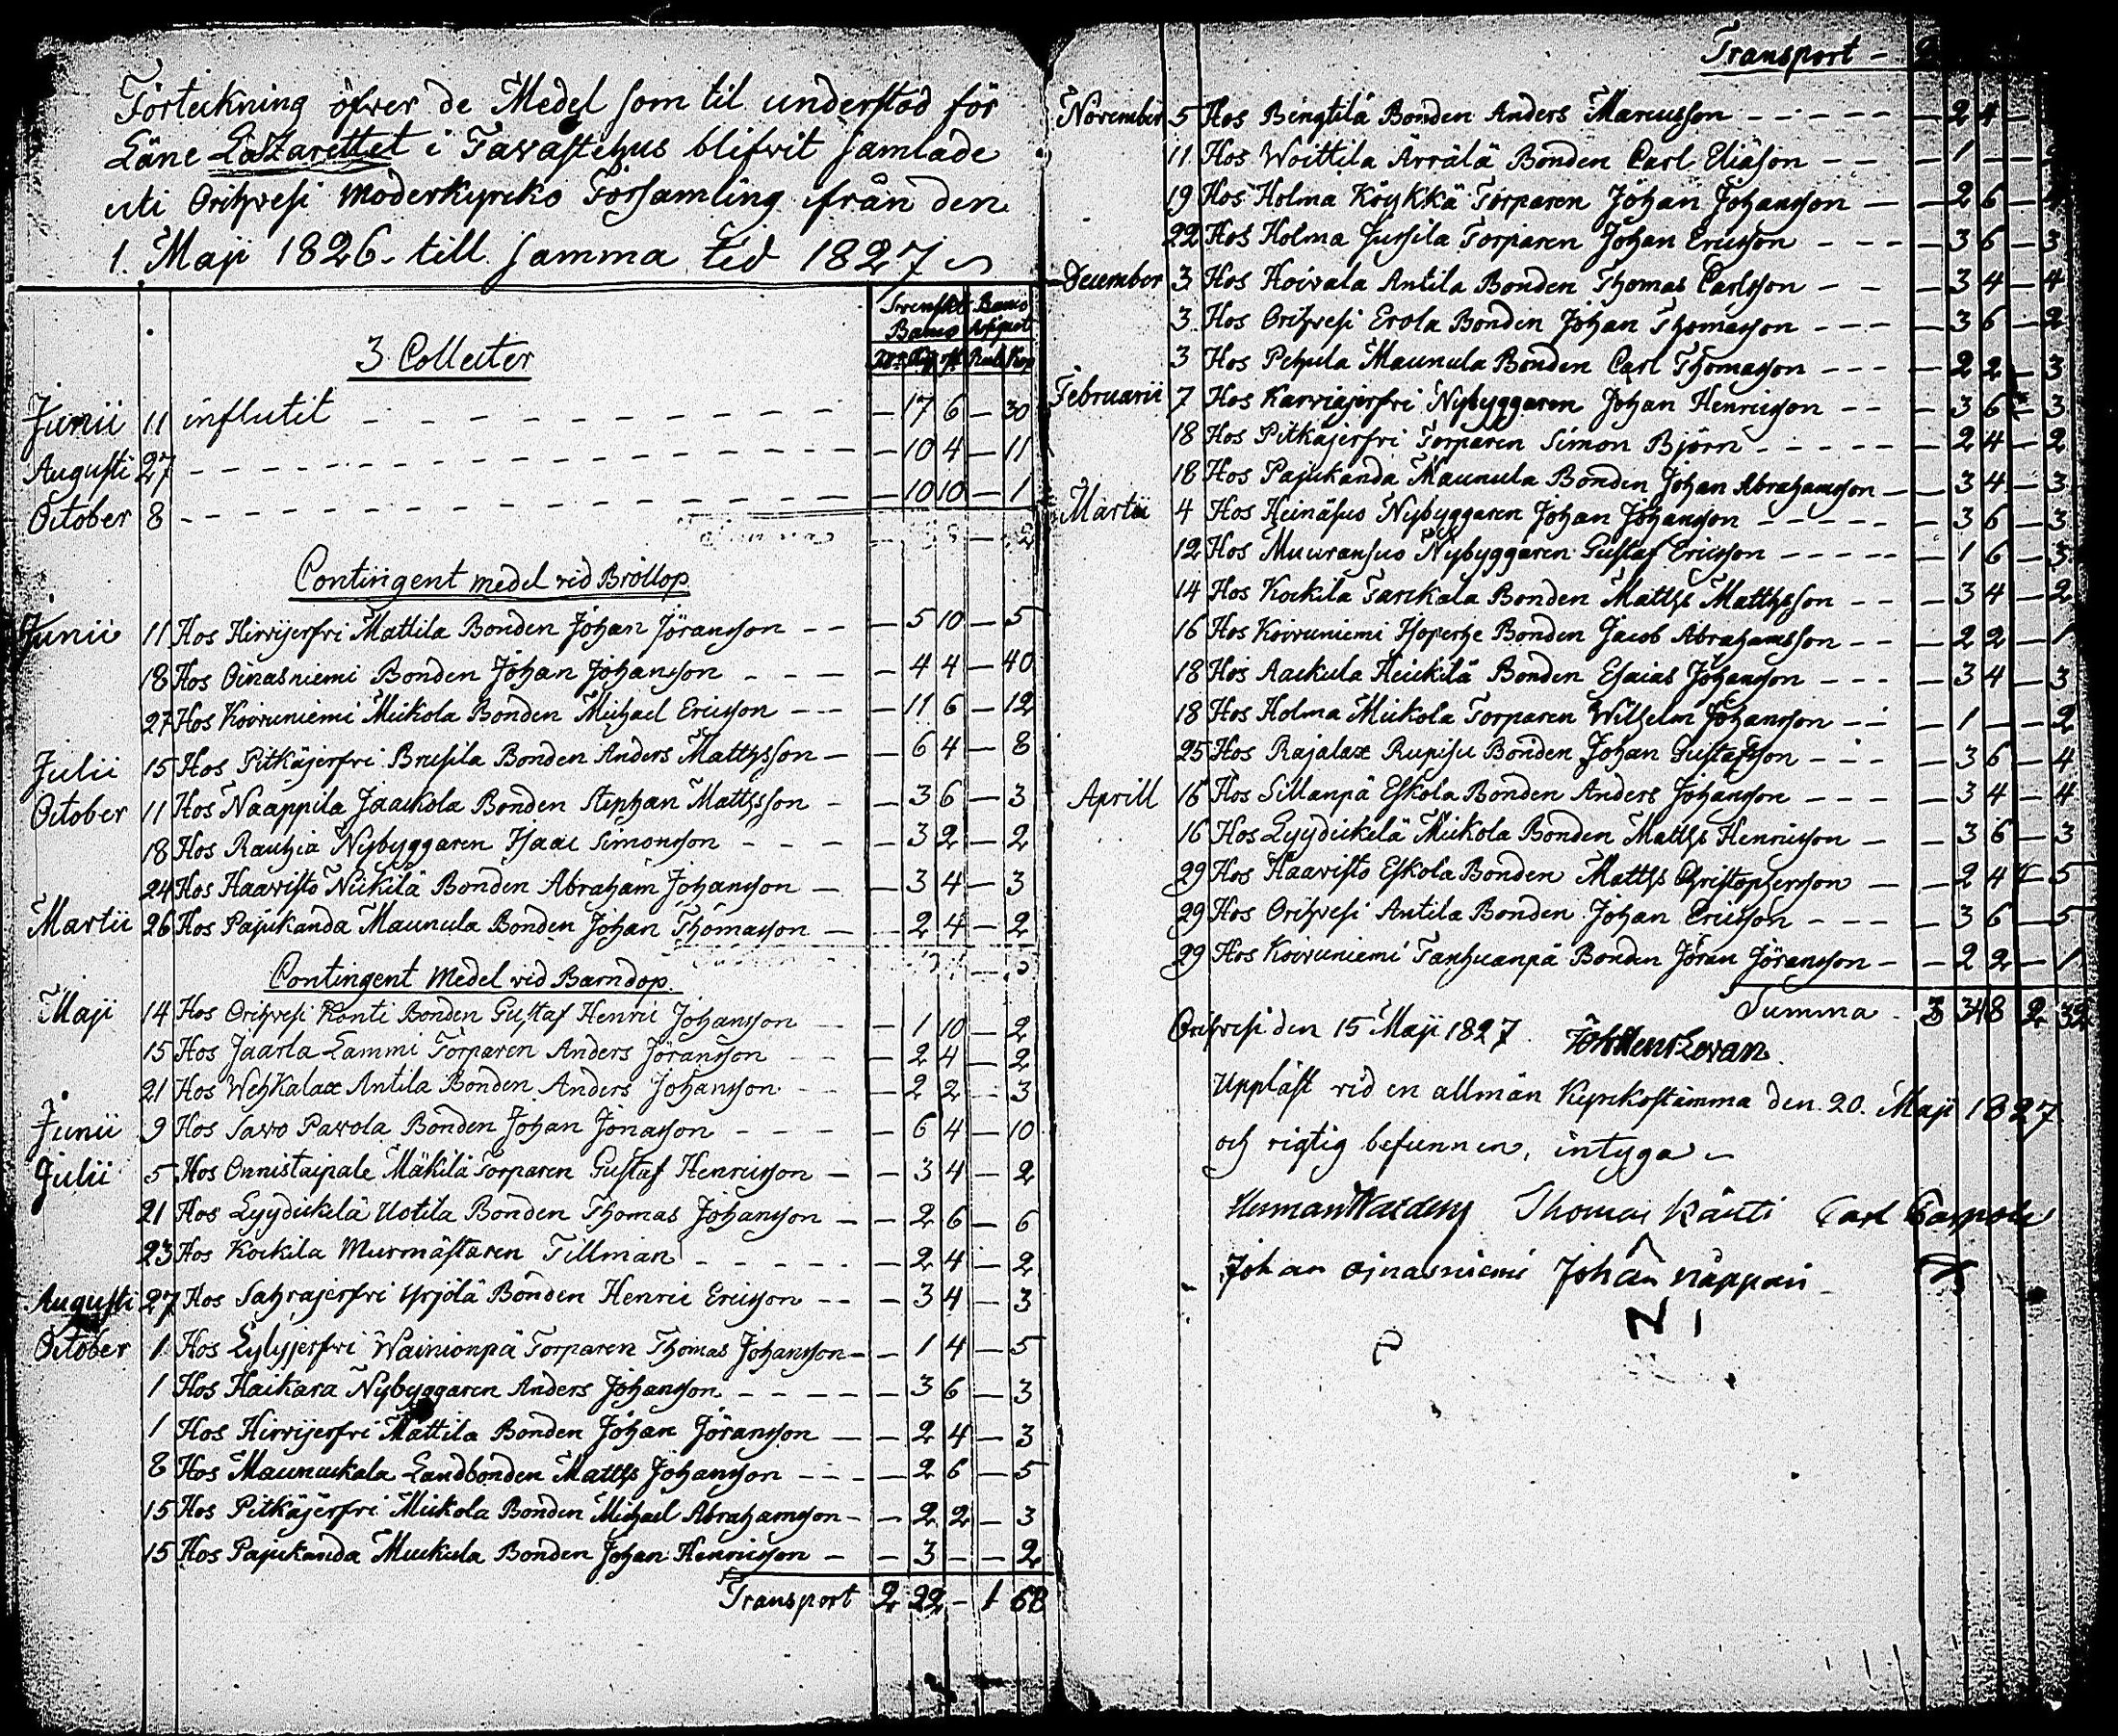 Förteckning öfver de Medel som til understöd för
Läne Lazarettet i Tavastehus blifvit samlade
uti Orihvesi Moderkyrko Församling ifrån den
1. Maji 1826 till samma tid 1827
Svenskt Banco Banco Assignat
Rdr Sk. rst Rub. Kop
3 Collecter
Junii 11 influtit — 17 6 — 30
Augusti 27 — 10 4 — 11
October 8 — 10 10 — 1
Contingent medel vid Bröllop
Junii 11 Hos Hirvijerfvi Mattila Bonden Johan Jöransson — 5 10 — 5
18 Hos Oinasniemi Bonden Johan Johansson — 4 4 — 40
27 Hos Koivuniemi Mickola Bonden Michael Ericsson — 11 6 — 12
Julii 15 Hos Pitkäjerfvi Brusila Bonden Anders Mattsson — 6 4 — 8
October 11 Hos Naappila Jaackola Bonden Stephan Mattsson — 3 6 — 3
18 Hos Rauhia Nybyggaren Isaac Simonsson — 3 2 — 2
24 Hos Haavisto Nickilä Bonden Abraham Johansson — 3 4 — 3
Martii 26 Hos Pajukanda Maunula Bonden Johan Thomasson — 2 4 — 2
Contingent Medel vid Barndop
Maji 14 Hos Orihvesi Konti Bonden Gustaf Henric Johansson — 1 10 — 2
15 Hos Jaarla Lammi Torparen Anders Jöransson — 2 4 — 2
21 Hos Wehkalax Antila Bonden Anders Johansson — 2 2 — 3
Junii 9 Hos Savo Pavola Bonden Johan Jonasson — 6 4 — 10
Julii 5 Hos Onnistaipale Mäkilä Torparen Gustaf Henricsson — 3 4 — 2
21 Hos Lyydickelä Uotila Bonden Thomas Johansson — 2 6 — 6
23 Hos Kockila Murmästaren Tillman — 2 4 — 2
Augusti 27 Hos Sahrajerfvi Yrjölä Bonden Henric Ericsson — 3 4 — 3
October 1 Hos Lylyjerfvi Wainionpä Torparen Thomas Johansson — 1 4 — 5
1 Hos Haikara Nybyggaren Anders Johansson — 3 6 — 3
1 Hos Hirvijerfvi Mattila Bonden Johan Jöransson — 2 4 — 3
8 Hos Maunuckala Landbonden Matths Johansson — 2 6 — 5
15 Hos Pitkäjerfvi Mickola Bonden Michael Abrahamsson — 2 2 — 3
15 Hos Pajukanda Muckula Bonden Johan Henricsson — 3 — — 2
Transport 2 22 — 1 68
Transport —
November 5 Hos Bengtilä Bonden Anders Marcusson — 2 4 —
11 Hos Woittila Ärrälä Bonden Carl Eliasson — 1 — —
19 Hos Holma Köykkä Torparen Johan Johansson — 2 6 — 4
22 Hos Holma Jussila Torparen Johan Ericsson — 3 6 — 3
December 3 Hos Hoivala Antila Bonden Thomas Carlsson — 3 4 — 4
3 Hos Orihvesi Erola Bonden Johan Thomasson — 3 6 — 2
3 Hos Pehula Maunula Bonden Carl Thomasson — 2 2 — 3
Februarii 7 Hos Karviajerfvi Nybyggaren Johan Henricsson — 3 6 — 3
18 Hos Pitkäjerfvi Torparen Simon Björn — 2 4 — 2
18 Hos Pajukanda Maunula Bonden Johan Abrahamsson — 3 4 — 3
Martii 4 Hos Heinäsuo Nybyggaren Johan Johansson — 3 6 — 3
12 Hos Muuransuo Nybyggaren Gustaf Ericsson — 1 6 — 3
14 Hos Kockila Tarckala Bonden Matths Matthsson — 3 4 — 2
16 Hos Koivuniemi Isoperhe Bonden Jacob Abrahamsson — 2 2 — 1
18 Hos Aackula Heickilä Bonden Esaias Johansson — 3 4 — 3
18 Hos Holma Mickola Torparen Wilhelm Johansson — 1 — — 2
25 Hos Rajalax Rupisu Bonden Johan Gustafsson — 3 6 — 4
Aprill 16 Hos Sillanpä Eskola Bonden Anders Johansson — 3 4 — 4
16 Hos Lyydickelä Mickola Bonden Matths Henricsson — 3 6 — 3
29 Hos Haavisto Eskola Bonden Matths Christophersson — 2 4 — 5
29 Hos Orihvesi Antila Bonden Johan Ericsson — 3 6 — 5
29 Hos Koivuniemi Tanhuanpä Bonden Jöran Jöransson — 2 2 — 1
Summa 3 34 8 2 32
Orihvesi den 15 Maji 1827.
Uppläst vid en allmän Kyrkostämma den 20. Maji 1827
och rigtig befunnen, intyga
Thomas Känti Carl
Johan ojnasniemi Johan näppäri